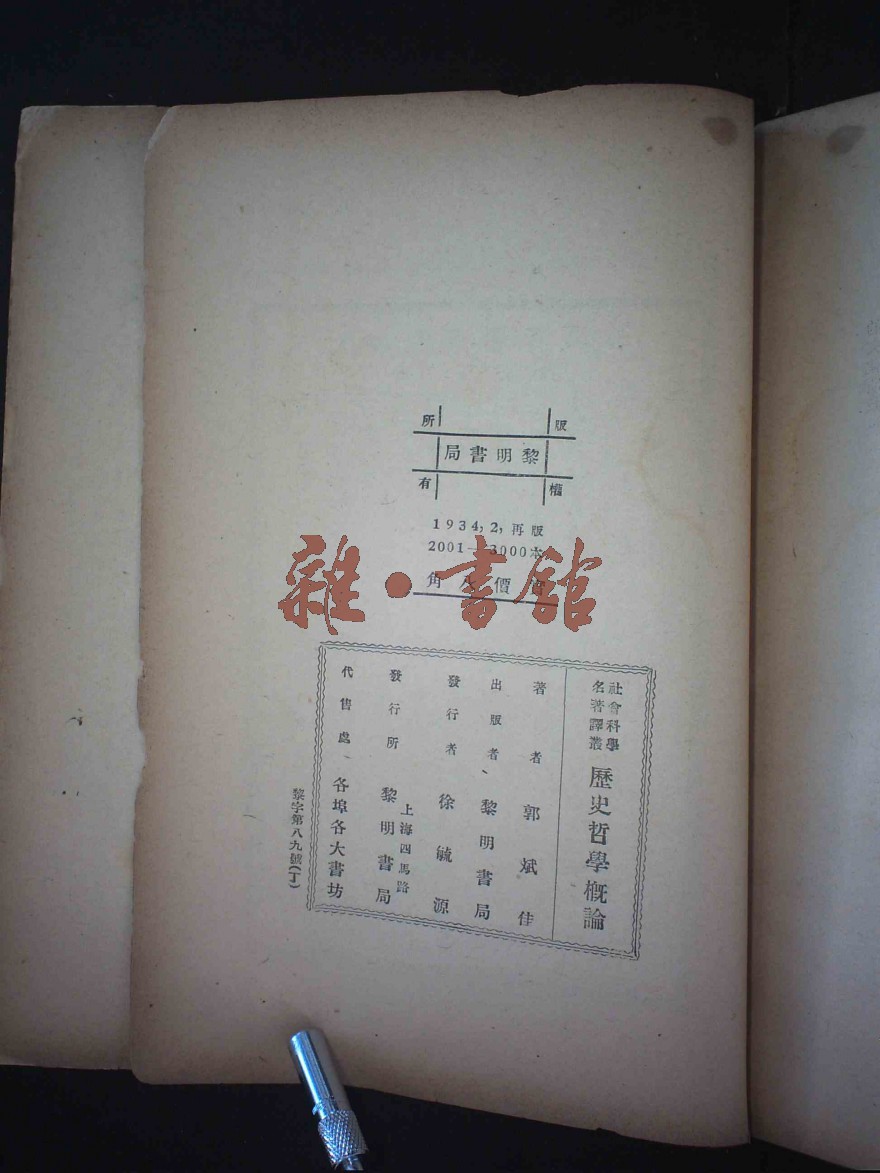 版權所有
黎明書局
1934,2,再版
2001—3000本
實價八角
雜·書館
社會科學
名著譯叢
歷史哲學概論
著者 郭斌佳
出版者 黎明書局
發行者 徐毓源
發行所 上海四馬路 黎明書局
代售處 各埠各大書坊
黎字第八九號(丁)